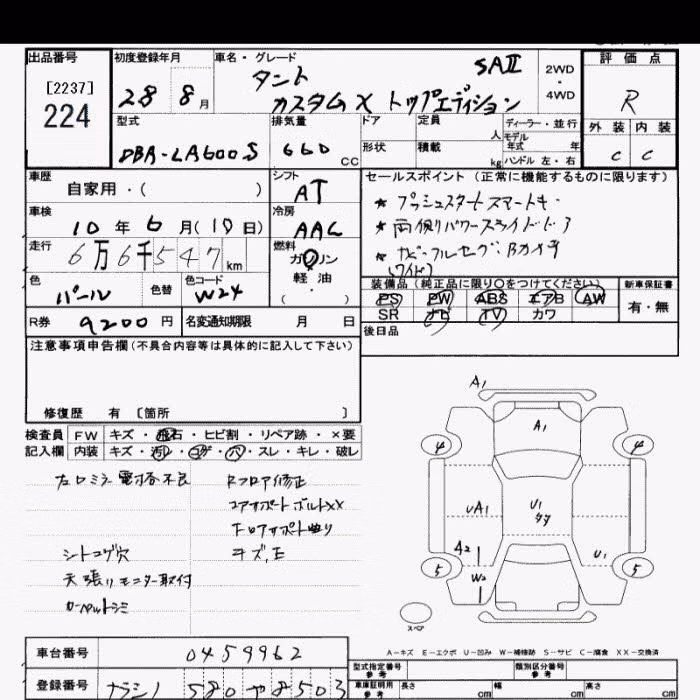 出品番号
[2237]
224
初度登録年月
28 8月
車名・グレード
タント SAII
カスタムX トップエディション
2WD
・
4WD
評価点
R
外装 内装
C C
型式
DBA-LA600S
排気量
660 CC
ドア
形状
定員 人
積載 kg
ディーラー・並行
モデル
年式 年
ハンドル 左・右
車歴
自家用・( )
シフト
AT
車検
10年6月(10日)
冷房
AAC
走行
6万6千547km
燃料
ガソリン
軽油
( )
色
パール
色替
色コード
W24
R券 9200円
名変通知期限 月 日
セールスポイント (正常に機能するものに限ります)
★プッシュスタートスマートキー
★両側パワースライドドア
★ナビ・フルセグ・Bカメラ
(ワイド)
装備品 (純正品に限り○をつけてください)
PS PW ABS エアB AW
SR ナビ TV カワ
新車保証書
有・無
後日品
注意事項申告欄(不具合内容等は具体的に記入して下さい)
修復歴 有 〔箇所 〕
検査員 FW キズ・飛石・ヒビ割・リペア跡・×要
記入欄 内装 キズ・汚レ・コゲ・穴・スレ・キレ・破レ
左ロミラー電格不良
Rフロア修正
コアサポートボルトXX
FロアサポートTED曲り
キズ,E
シートコゲ穴
天張りモニター取付
カーペットシミ
A1
A1
4 4
UA1
U1
A2
W2
U1
5 5
スペア
A-キズ E-エクボ U-凹み W-補修跡 S-サビ C-腐食 XX-交換済
車台番号 0459962
登録番号 ナラシノ 580 や 8503
型式指定番号
参考
類別区分番号
参考
車庫証明用
参考
長さ cm
幅 cm
高さ cm